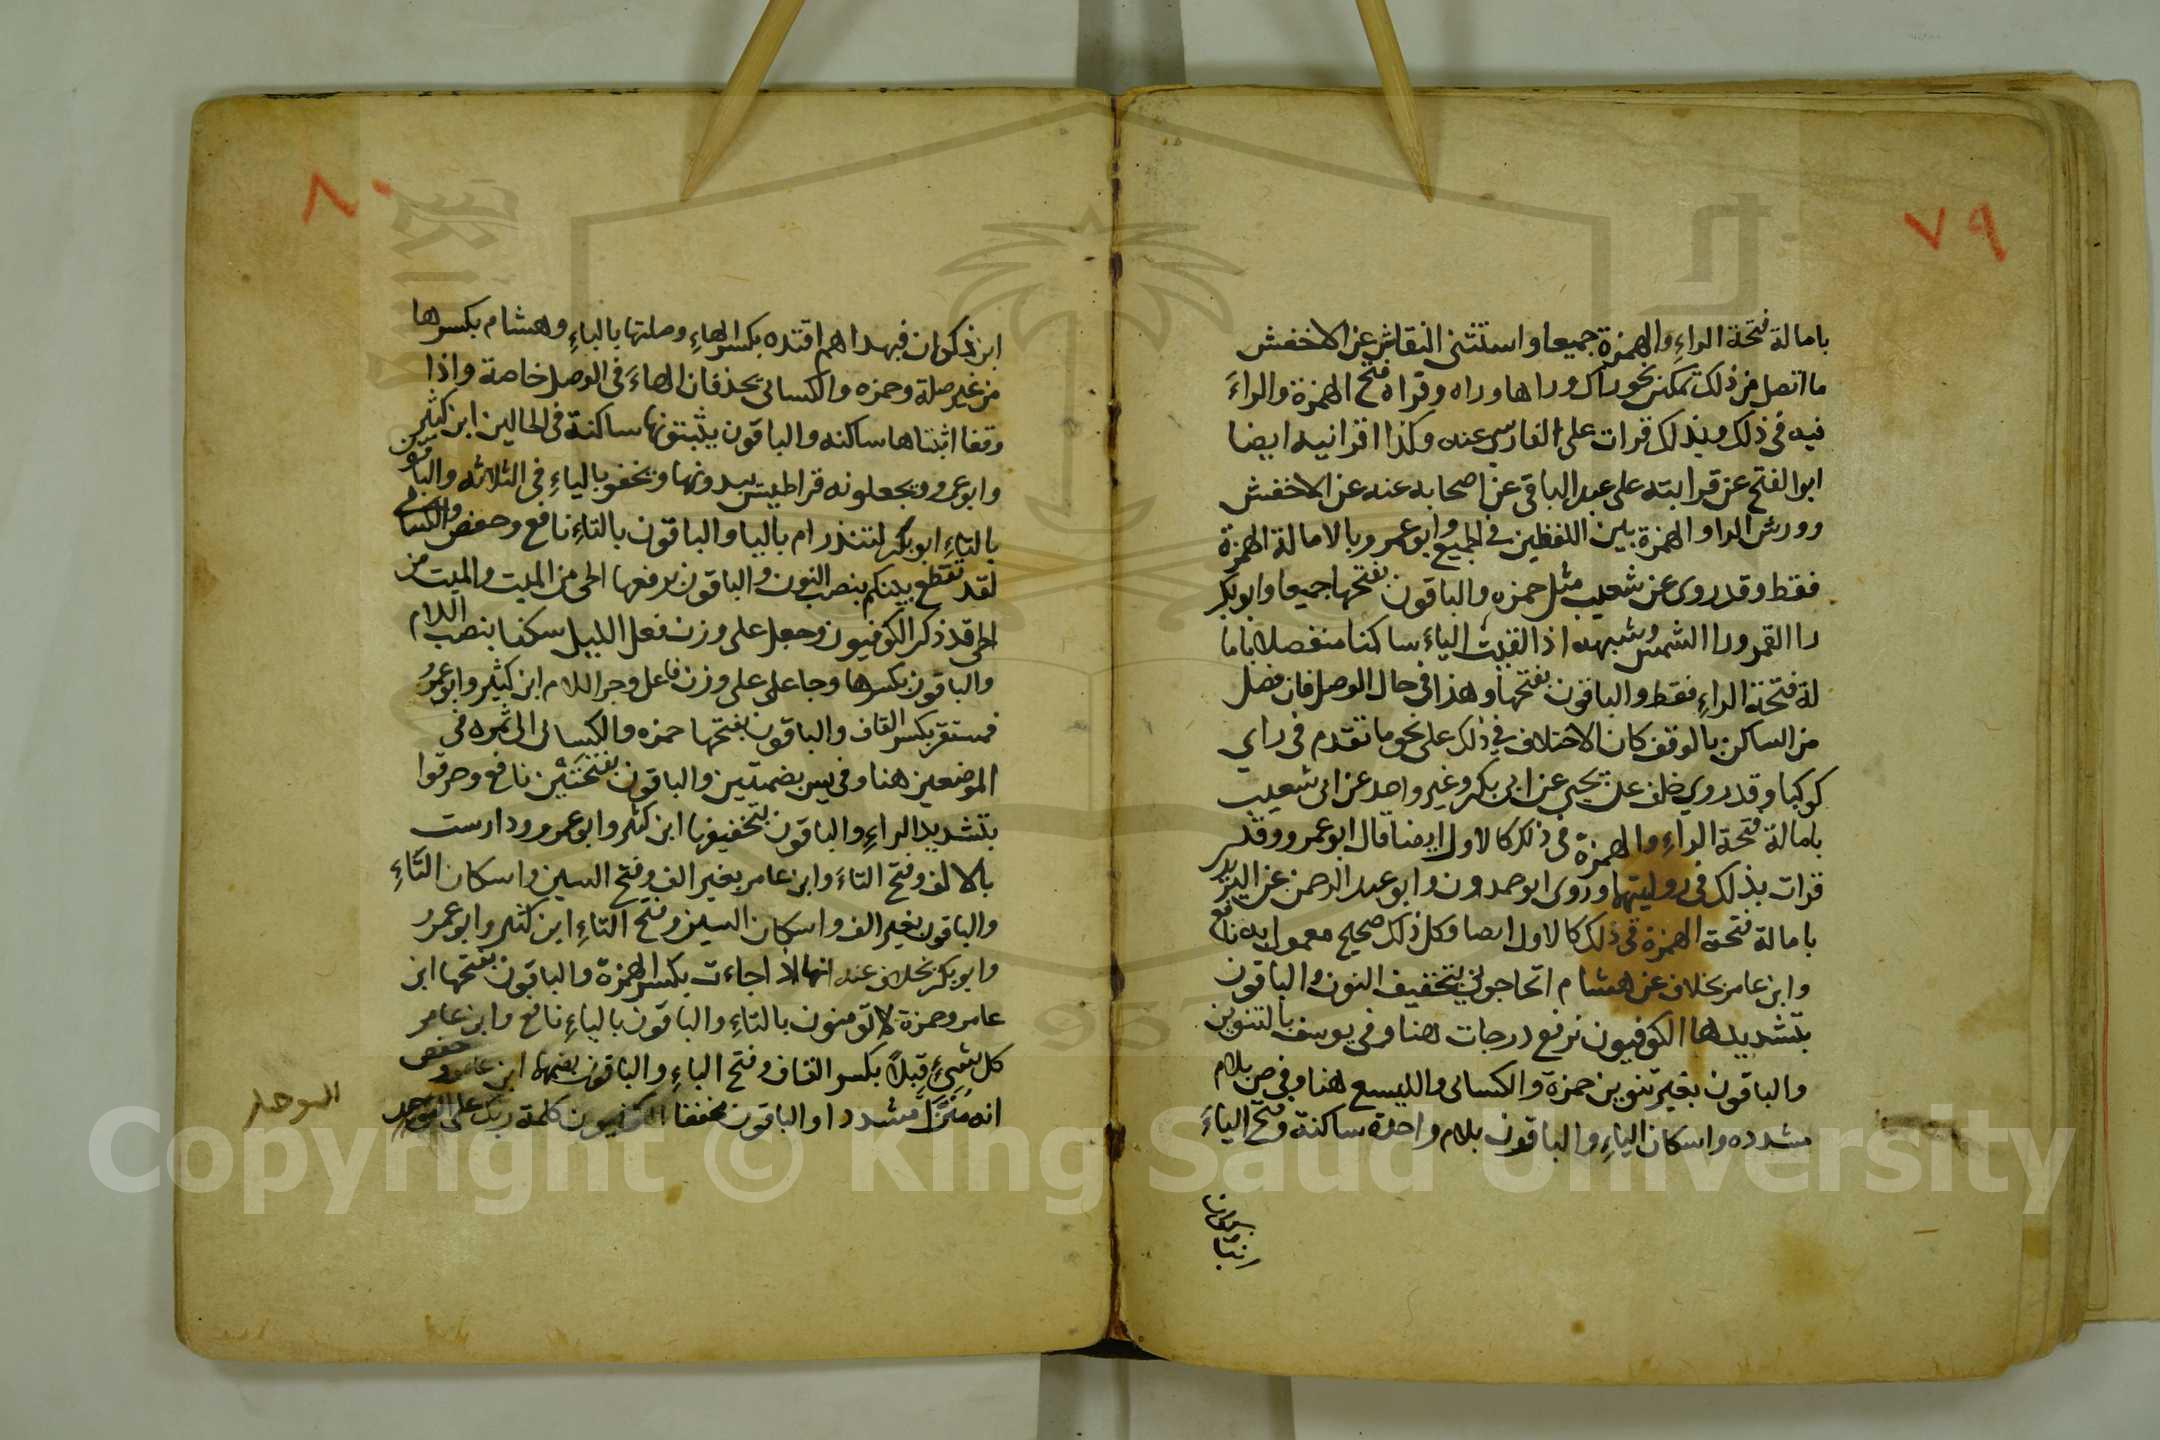 ٧٩
بامالة فتحة الراءِ والهمزة جميعا واستثنى النقاش عن الاخفش
ما اتصل من ذلك بمكنى نحو راك وراها وراه وقراه فتح الهمزة والراءَ
فيه في ذلك وبذلك قرات على الفارسي عنه وكذا اقرانيه ايضا
ابو الفتح عن قرابته على عبد الباقي عن اصحابه عنه عن الاخفش
وورش الرا والهمزة بين اللفظين في الجميع وابو عمرو بالامالة الهمزة
فقط وقد روى عن شعيب مثل حمزه والباقون بفتحها جميعا وابو بكر
را القمر ورا الشمس وشبهه اذا لقيت الياءَ ساكنا منفصلا باما
لة فتحة الراءِ فقط والباقون بفتحها وهذا في حال الوصل فان فصل
من الساكن بالوقف كان الاختلاف في ذلك على نحو ما تقدم في راي
كوكبا وقد روي خلف عن يحيى عن ابي بكر وغير واحد عن ابي شعيب
بامالة فتحة الراءِ والهمزة في ذلك كالاول ايضا قال ابو عمرو وقد
قرات بذلك في روايتهما وروى ابو حمدون وابو عبد الرحمن عن اليزيد
بامالة فتحة الهمزة في ذلك كالاول ايضا وكل ذلك صحيح معمول به نافع
وابن عامر بخلاف عن هشام اتحاجوني بتخفيف النون والباقون
بتشديدها الكوفيون نرفع درجات هنا وفي يوسف بالتنوين
والباقون بغير تنوين حمزة والكسائى والليسع هنا وفي ص بلام
مشدده واسكان الياءِ والباقون بلام واحدة ساكنة وفتح الياءَ
٨٠
ابن ذكوان فبهداهم اقتده بكسر الهاءِ وصلتها بالياءِ وهشام بكسرها
من غير صلة وحمزه والكسائى يحذفان الهاءَ في الوصل خاصة واذا
وقفا اثبتاها ساكنه والباقون يثبتونها ساكنة في الحالين ابن كثير
وابو عمرو يجعلونه قراطيس يبدونها ويخفو بالياءِ في الثلاثه والباقون
بالتاءِ ابو بكر لتنذر ام باليا والباقون بالتاءِ نافع وحفص والكسائي
لقد تقطع بينكم بنصب النون والباقون برفعها الحى من الميت والميت من
الحى قد ذكر الكوفيون وجعل على وزن فعل الليل سكنا بنصب اللام
والباقون بكسرها وجاعل على وزن فاعل وجر اللام ابن كثير وابو عمرو
فمستقر بكسر القاف والباقون بفتحها حمزه والكسائى الى ثمره في
الموضعين هنا وفي يس بضمتين والباقون بفتحتين نافع وخرقوا
بتشديد الراءِ والباقون بتخفيفها ابن كثير وابو عمرو ودارست
بالالف وفتح التاءَ وابن عامر بغير الف وفتح السين واسكان التاءِ
والباقون بغير الف واسكان السين وفتح التاءِ ابن كثير وابو عمرو
وابو بكر بخلاف عنه انها اذا جاءت بكسر الهمزة والباقون بفتحها ابن
عامر وحمزة لا تومنون بالتاءِ والباقون بالياءِ نافع وابن عامر
كل شيءٍ قبلاً بكسر القاف وفتح الباءِ والباقون بضمهما ابن عامر وحفص
انه منزَّل مشددا والباقون مخففا الكوفيون كلمة ربك على التوحيد
Copyright © King Saud University